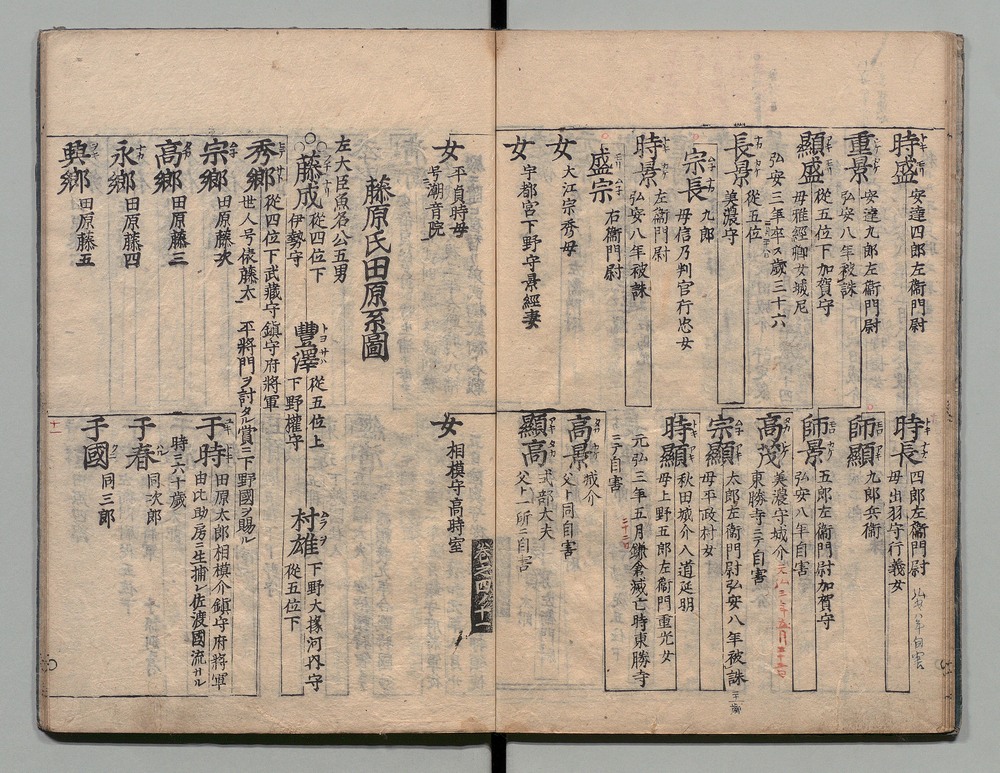 時盛 安達四郎左衞門尉
重景 安達九郎左衞門尉
弘安八年被誅
顯盛 從五位下加賀守
母雅經卿女城尼
弘安三年卒ス歳三十六
長景 從五位
美濃守
宗長 九郎
母信乃判官行忠女
時景 左衞門尉
弘安八年被誅
盛宗 右衞門尉
女 大江宗秀母
女 宇都宮下野守景經妻
時長 四郎左衞門尉
母出羽守行義女
師顯 九郎兵衞
師景 五郎左衞門尉加賀守
弘安八年自害
高茂 美濃守城介
東勝寺ニテ自害
宗顯 太郎左衞門尉弘安八年被誅
母平政村女
時顯 秋田城介入道延明
母上野五郎左衞門重光女
元弘三年五月鎌倉滅亡時東勝寺
ニテ自害
高景 城介
父ト同自害
顯高 式部大夫
父ト一所ニ自害
女 平貞時母
号潮音院
女 相模守高時室
藤原氏田原系圖
左大臣魚名公五男
藤成 從四位下
伊勢守
豐澤 從五位上
下野權守
村雄 下野大掾河内守
從五位下
秀郷 從四位下武藏守鎭守府將軍
世人号俵藤太 平將門ヲ討タル賞ニ下野國ヲ賜ル
宗郷 田原藤次
高郷 田原藤三
永郷 田原藤四
興郷 田原藤五
千時 田原太郎相模介鎭守府將軍
由比助房ニ生捕レ佐渡國流サル
時六十歳
千春 同次郎
千國 同三郎